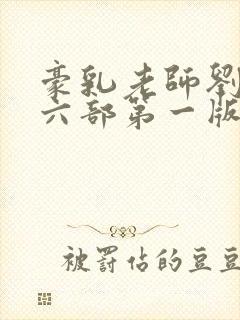 豪乳老師劉
六部第一版
被罰佔的豆豆